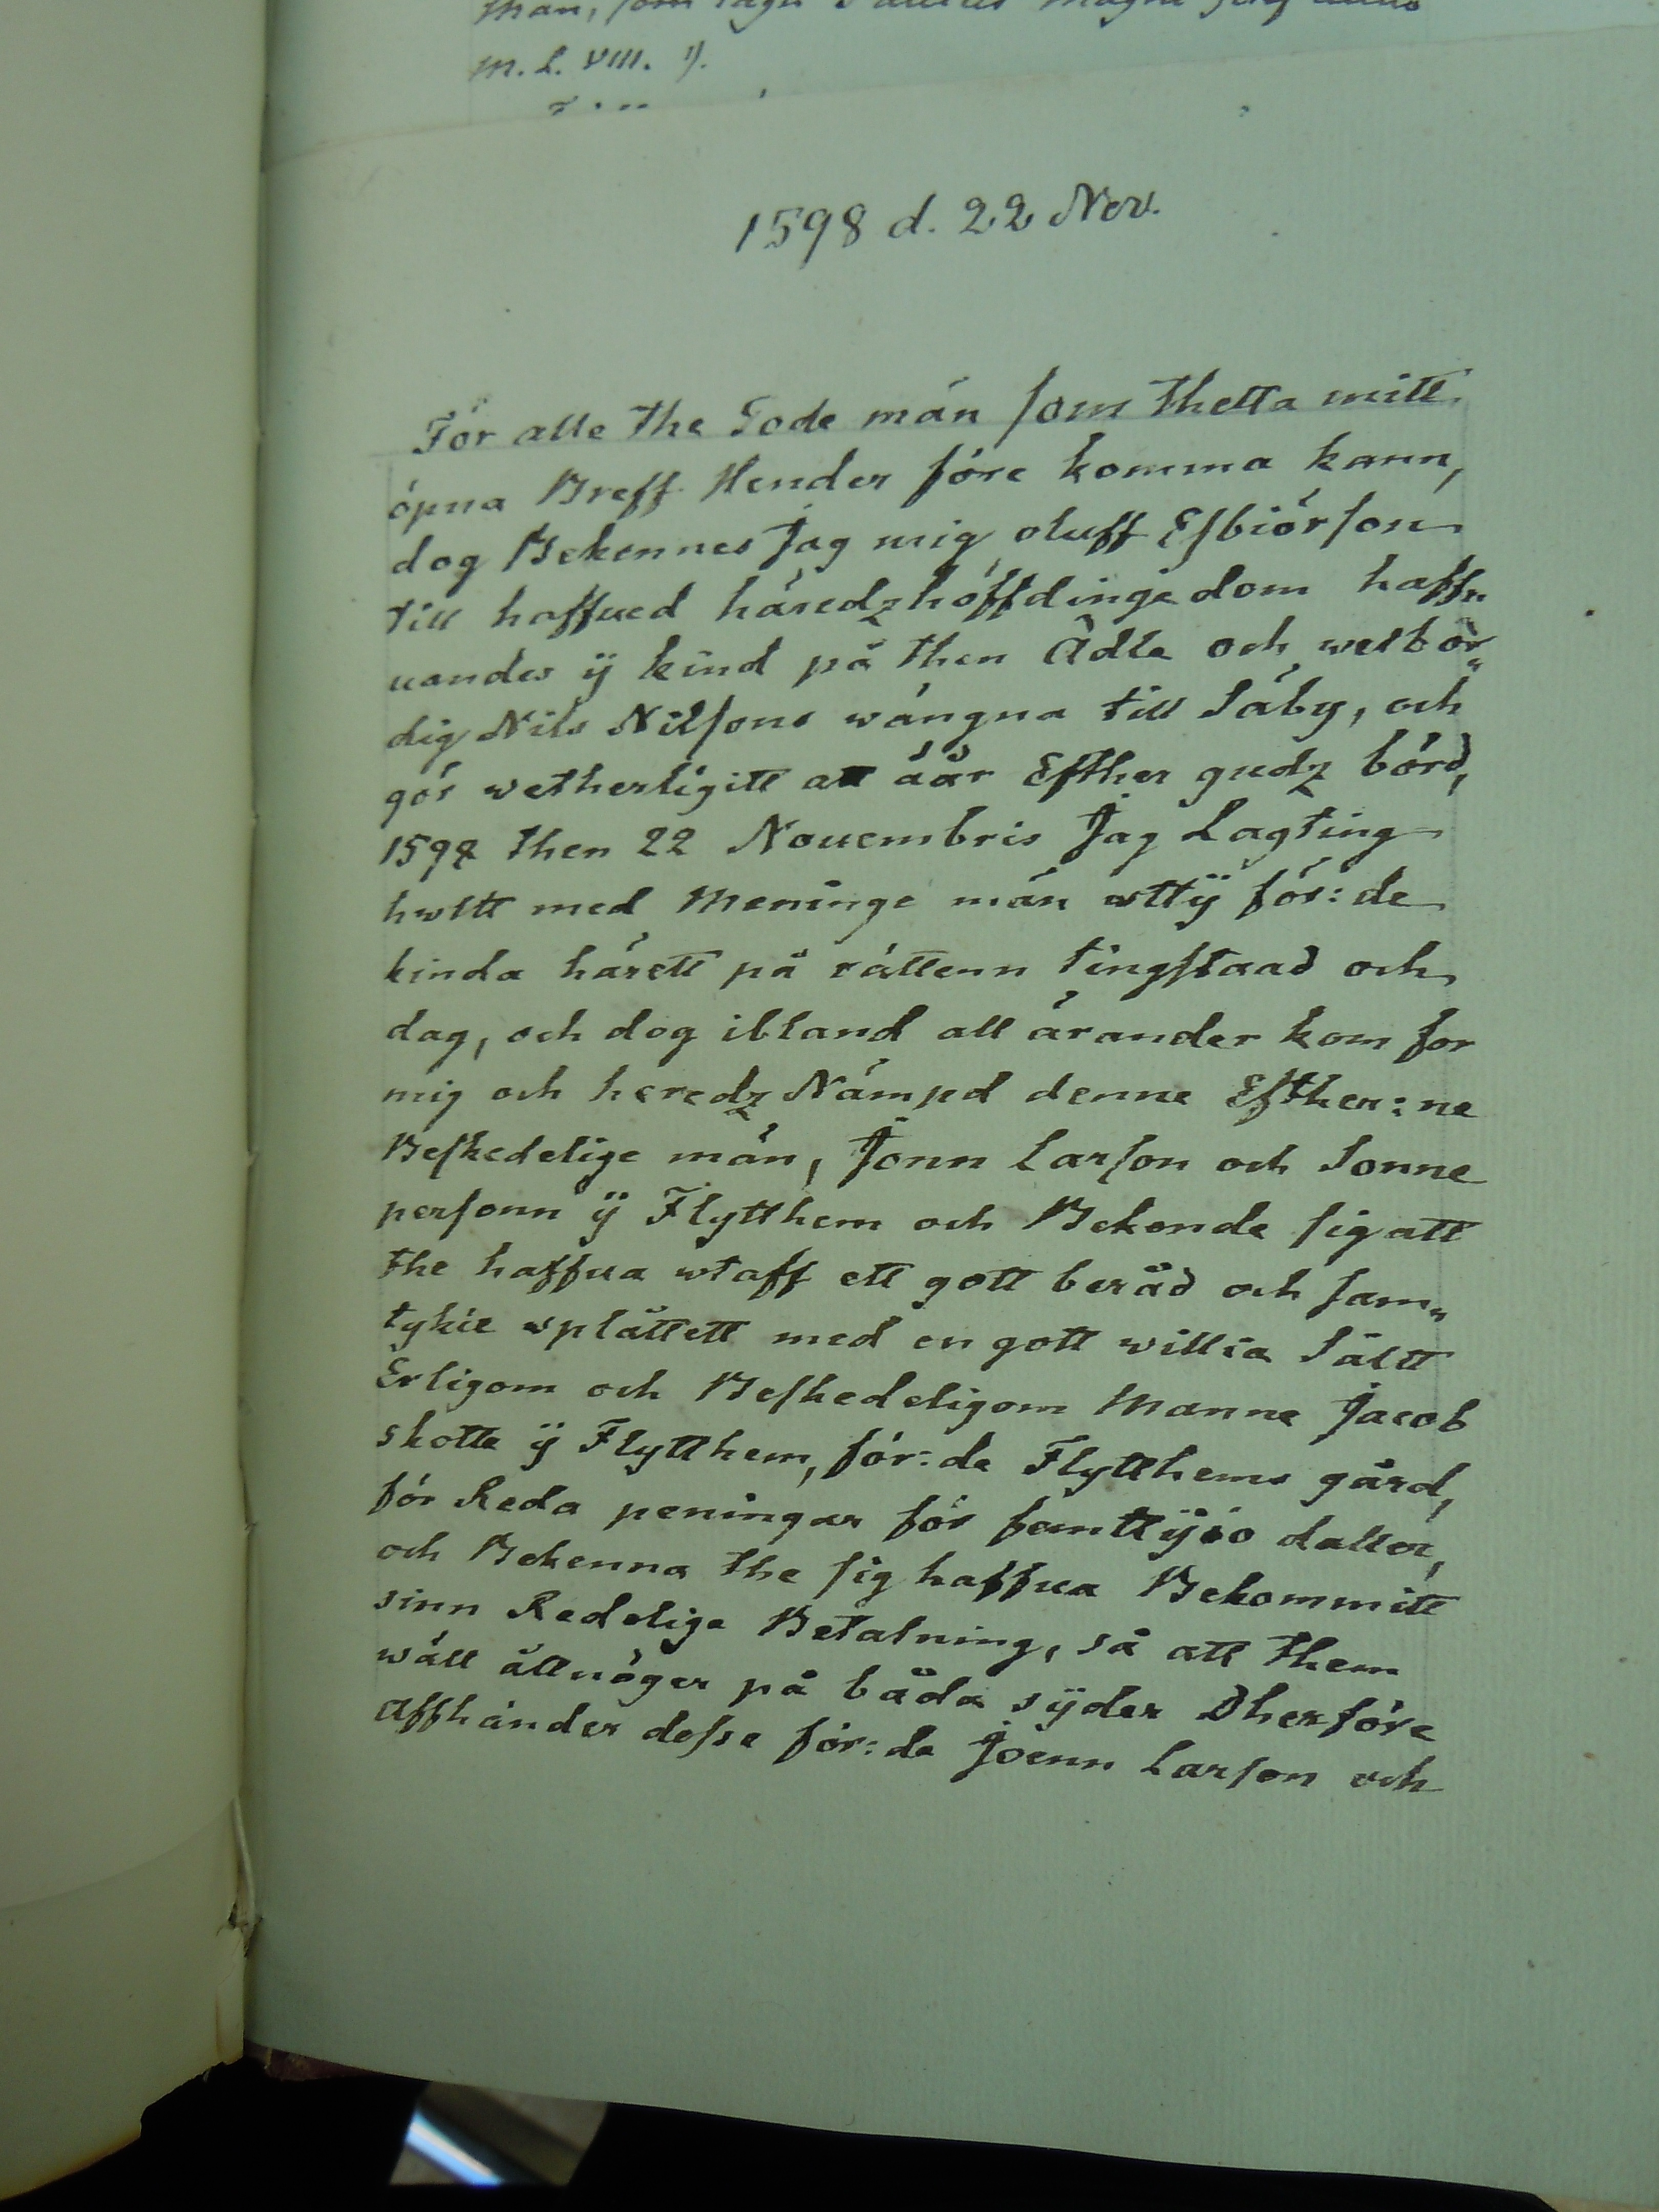 m. L. VIII. 1).
1598 d. 22 Nov.
För alle the Gode män som thetta mitt
öpna Breff Hender före komma kann,
dog Bekennes Jag mig oluff Esbiörson
till haffued häredzhöffdinge dom haff„
uandes ÿ kind på then Ädle och welbör„
dig Nils Nilsons wängna till Säby, och
gör wetherligitt att åår Efther gudz börd,
1598 then 22 Nouembris Jag Lagting
hwltt med meninge män wttÿ för:de
kinda härett på rättenn tingstaad och
dag, och dog ibland all ärander kom for
mig och heredz Nämpd denne Efther:ne
Beskedelige män, Jönn Larson och Sonne
personn ÿ Flytthem och Bekende sig att
the haffua wtaff ett gott beråd och sam„
tykie wplåttett med en gott willia Såltt
Erligom och Beskedeligom Manne Jacob
skotte ÿ Flytthem, för:de Flytthems gård,
för Reda peningar för femttÿio daller,
och Bekenna the sig haffua Bekommitt
sinn Redelige Betalning, så att them
wäll åttnöger på båda sÿder Dherföre
Affhänder desse för:de Joenn Larson och